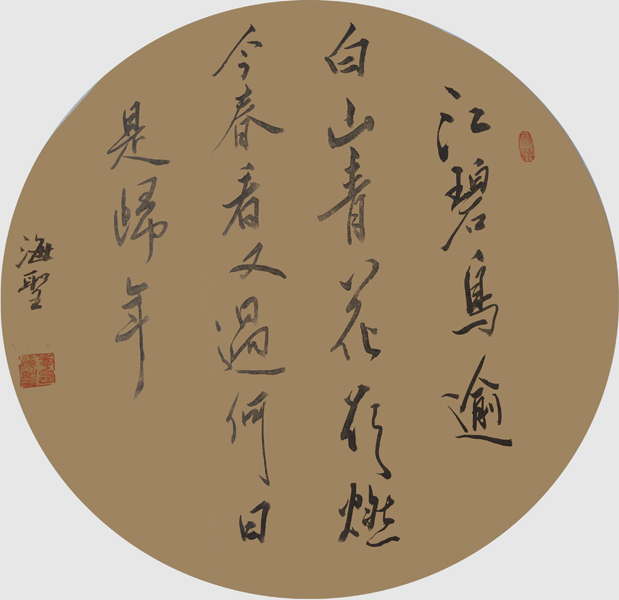 江碧鳥逾
白山青花欲燃
今春看又過何日
是歸年
海聖